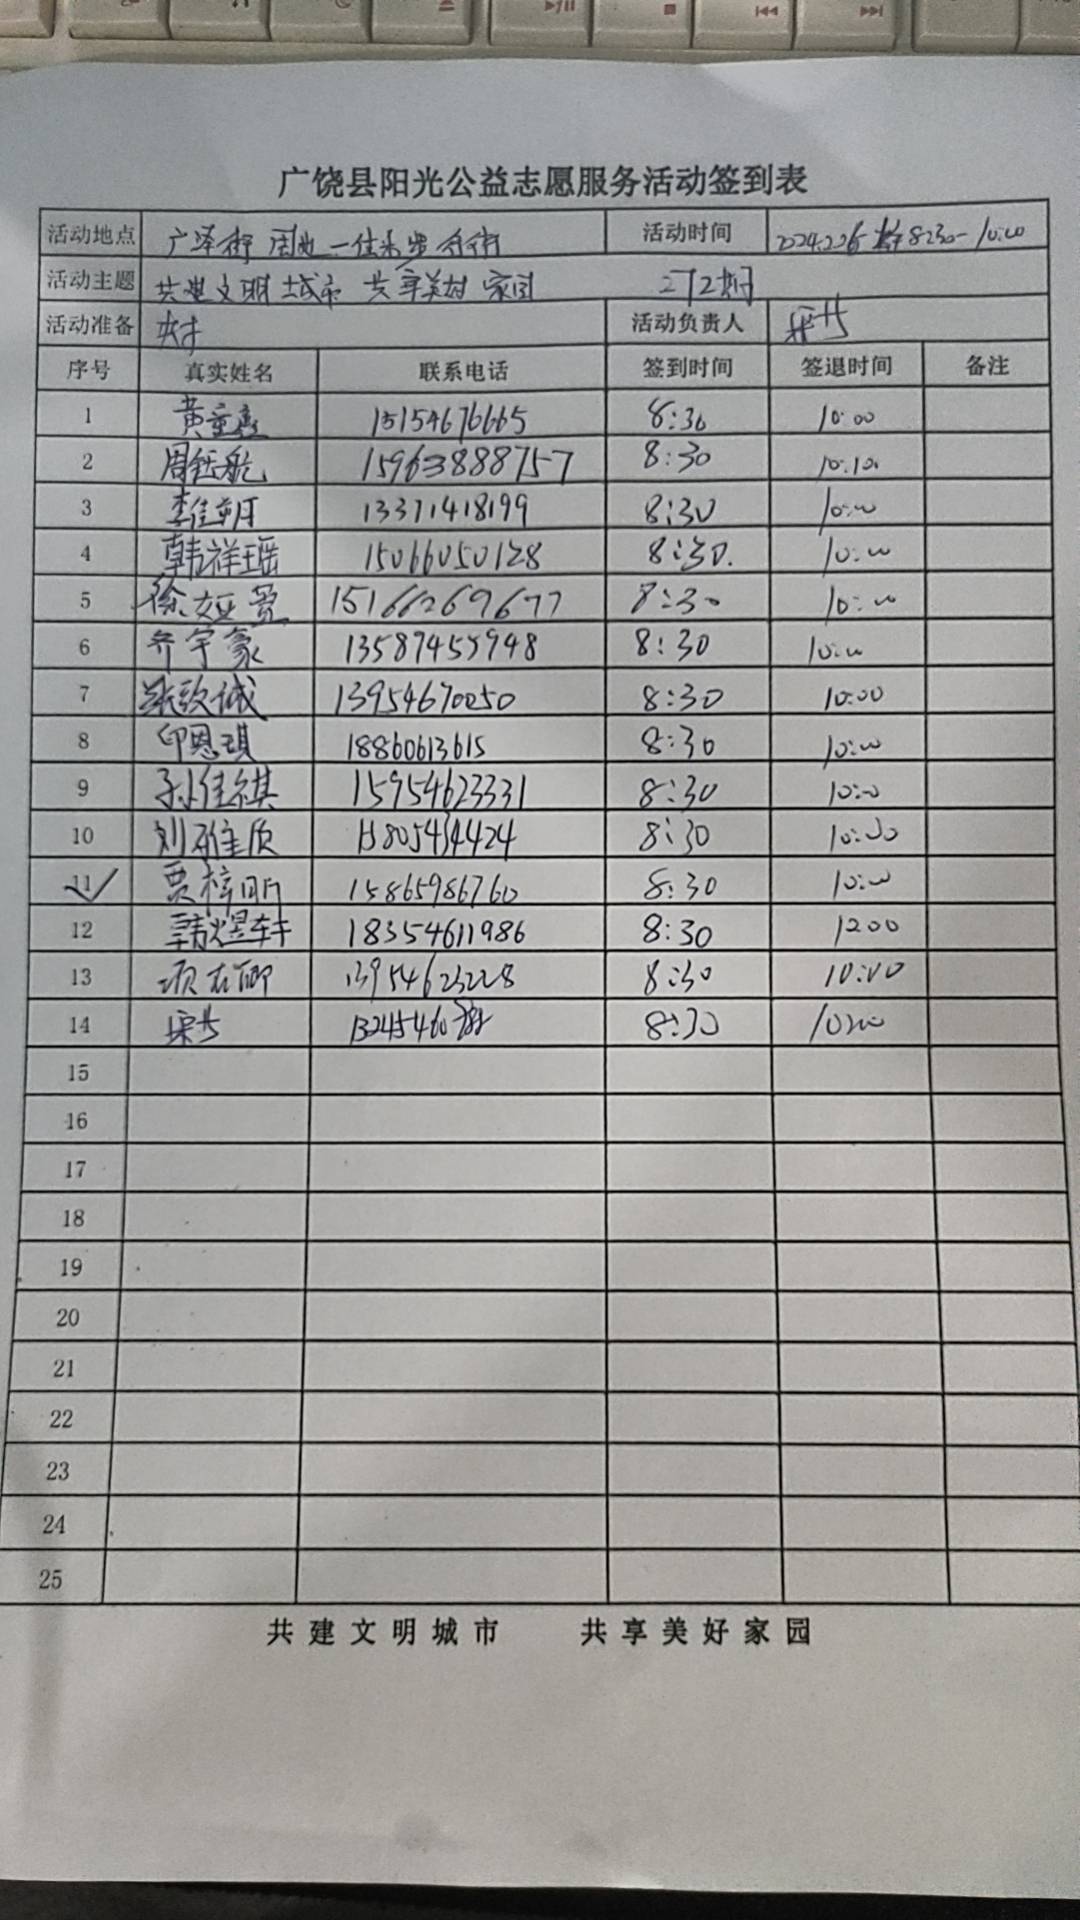 广饶县阳光公益志愿服务活动签到表
活动地点 广泽街 周边 活动时间 2024.2.26 8:30-10:00
活动主题 共建文明城市 共享美好家园 272期
活动准备 活动负责人
序号 真实姓名 联系电话 签到时间 签退时间 备注
1 黄 15154676665 8:30 10:00
2 周钰航 15963888757 8:30 10:10
3 李佳朔 13371418199 8:30 10:00
4 韩祥瑶 15066050128 8:30. 10:00
5 徐 15166269677 8:30 10:00
6 齐宇豪 13587455948 8:30 10:00
7 张致诚 13954670050 8:30 10:00
8 印恩琪 18860613615 8:30 10:00
9 孙佳祺 15954623331 8:30 10:00
10 刘 8:30 10:00
11 贾梓昕 15865986760 8:30 10:00
12 韩煜轩 18354611986 8:30 1200
13 8:30 10:00
14 8:30 10:00
15
16
17
18
19
20
21
22
23
24
25
共建文明城市 共享美好家园